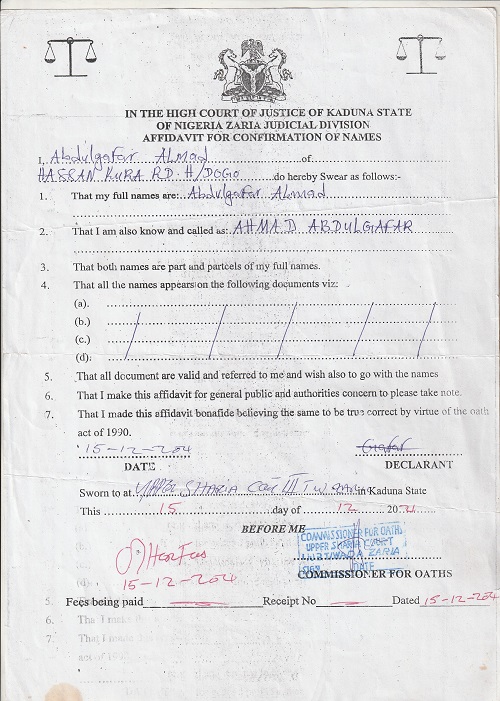 IN THE HIGH COURT OF JUSTICE OF KADUNA STATE
OF NIGERIA ZARIA JUDICIAL DIVISION
AFFIDAVIT FOR CONFIRMATION OF NAMES
I, Abdulgafar Ahmad of
HASSAN KURA RD. H/DOGO do hereby Swear as follows:-
1. That my full names are: Abdulgafar Ahmad
2. That I am also know and called as: AHMAD ABDULGAFAR
3. That both names are part and partcels of my full names.
4. That all the names appears on the following documents viz:
(a).
(b.)
(c.)
(d):
5. That all document are valid and referred to me and wish also to go with the names
6. That I make this affidavit for general public and authorities concern to please take note.
7. That I made this affidavit bonafide believing the same to be true correct by virtue of the oath
act of 1990.
15-12-204
DATE
DECLARANT
Sworn to at UPPER SHARIA in Kaduna State
This 15 day of 12 20
BEFORE ME
COMMISSIONER FOR OATHS
UPPER SHARIA COURT
ZARIA
SIGN DATE
15-12-204
COMMISSIONER FOR OATHS
5. Fees being paid Receipt No Dated 15-12-204
6. Tha I make
7. That I made
act of